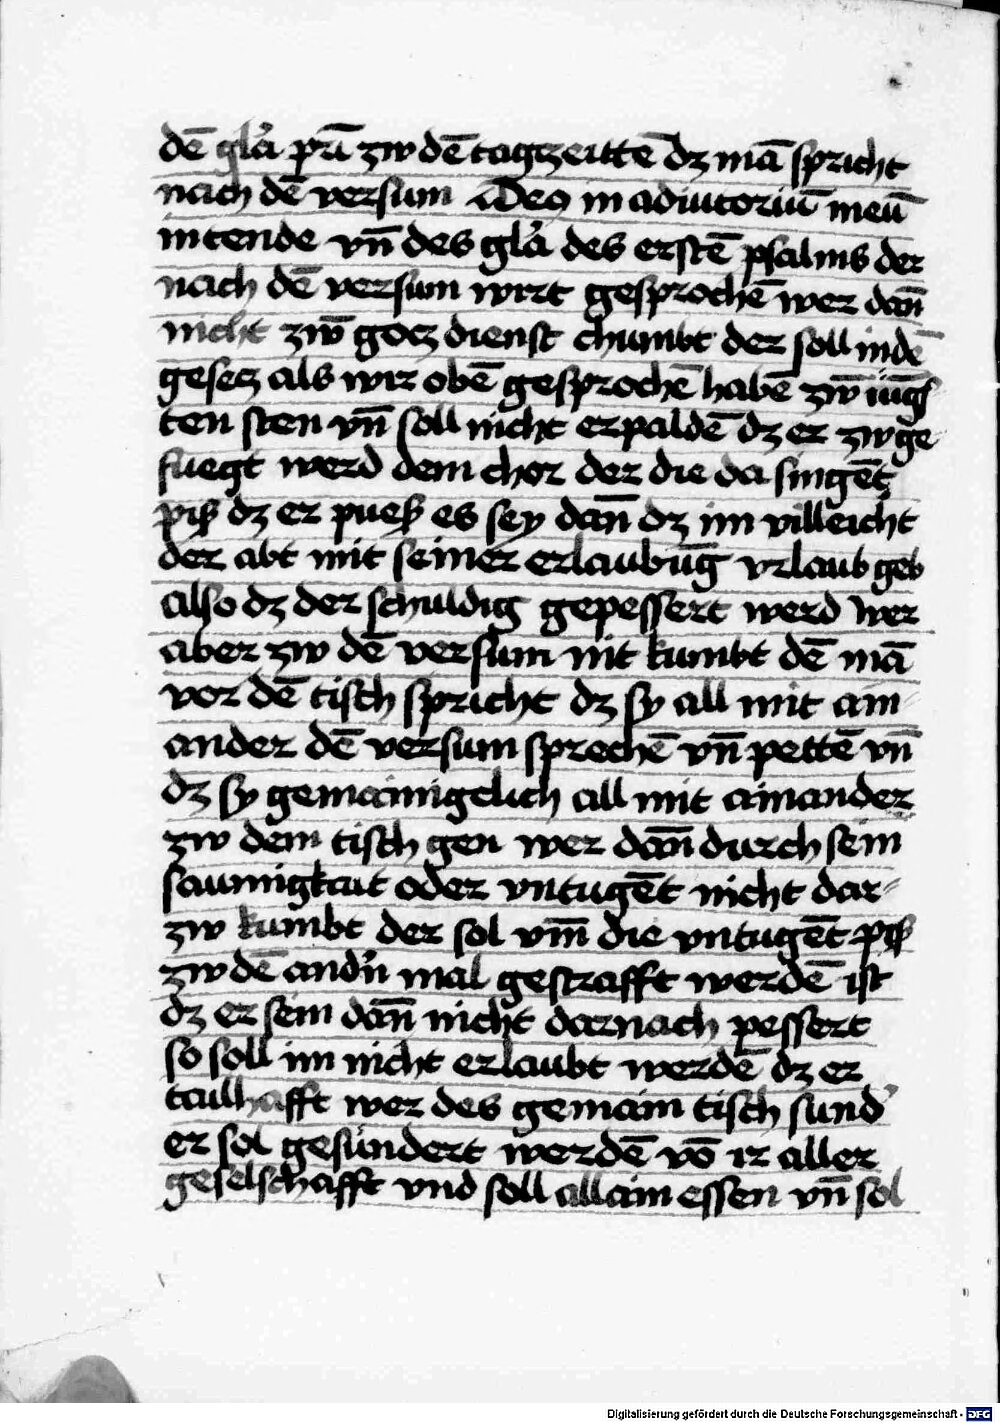 dē gl'a pr̄i zw dē tagzeittē dz mā spricht
nach dē versum Deus in adiutoriū meū
intende vn̄ des gl'a des erstē psalms der
nach dē versum wirt gesprochē wer dan̄
nicht zw̄ gocz dienst chumbt der soll in dē
gesecz als wir obē gesprochē habē zw̄ iūgs
ten sten vn̄ soll nicht erpaldē dz er zw ge
fuegt werd dem chor der die da singēt
piß dz er pueß es sey dan̄ dz im villeicht
der abt mit seiner erlaubūg vrlaub geb
also dz der schuldig gepessert werd wer
aber zw dē versum nit kumbt dē mā
vor dē tisch spricht dz sy all mit ain-
ander dē versum sprechē vn̄ pettē vn̄
dz sy gemainigclich all mit ainander
zw dem tisch gen wer dan̄ durch sein
saumigkait oder vntugēt nicht dar-
zw kumbt der sol vm̄ die vntugēt piß
zw dē and'n mal gestrafft werdē ist
dz er sein dan̄ nicht darnach pessert
so soll im nicht erlaubt werdē dz er
tailhafft wer des gemain tisch sund'
er sol gesundert werdē vō ir aller
geselschafft vnd soll allain essen vn̄ sol
Digitalisierung gefördert durch die Deutsche Forschungsgemeinschaft - DFG